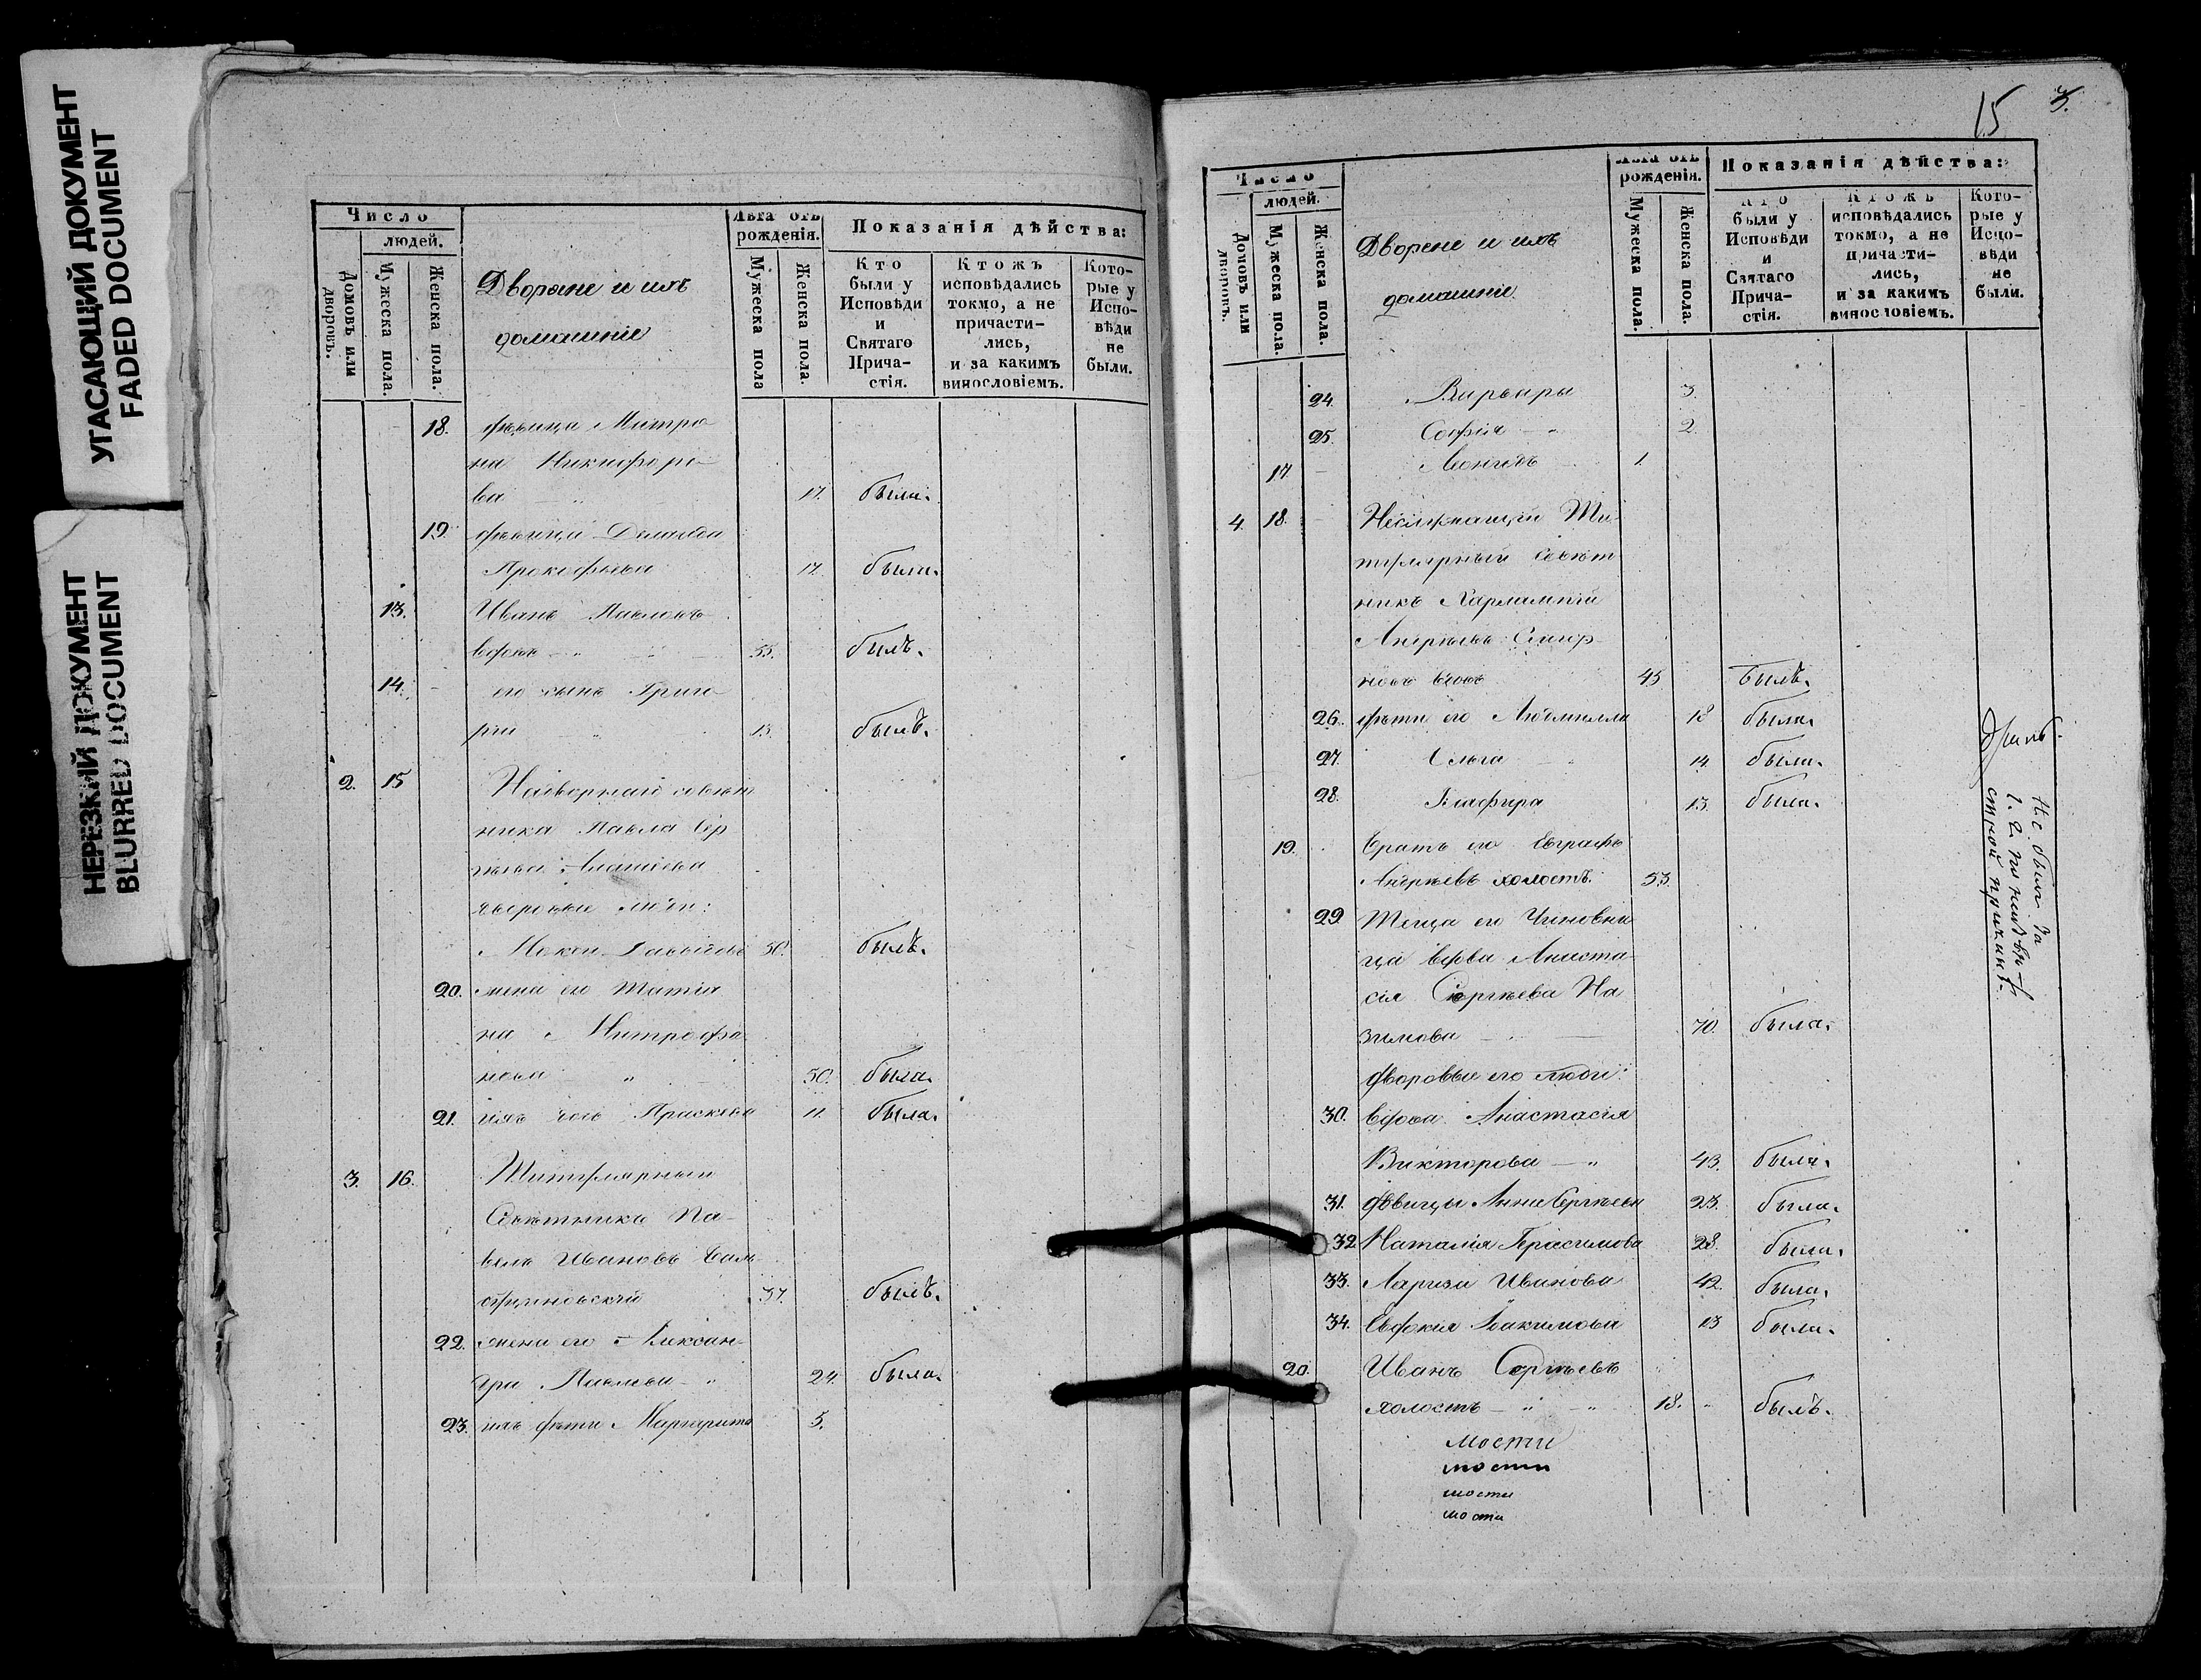 УГАСАЮЩИЙ ДОКУМЕНТ
FADED DOCUMENT
НЕРЕЗКИЙ ДОКУМЕНТ
BLURRED DOCUMENT
Число
людей.
Домовъ или дворовъ.
Мужеска пола.
Женска пола.
Дворяне и ихъ
домашніе
Лѣта отъ
рожденія.
Мужеска пола
Женска пола.
Показанія дѣйства:
Кто
были у
Исповѣди
и
Святаго
Прича-
стія.
Ктожъ
исповѣдались
токмо, а не
причасти-
лись,
и за какимъ
винословіемъ.
Кото-
рые у
Испо-
вѣди
не
были.
18. дѣвица Матро
на Никифоро
ва 17. была.
19. дѣвица
Прокофьева 17. была.
13. Иванъ Павловъ
вдовъ 55. былъ.
14. его сынъ Григо
рій 13. былъ.
2. 15 Надворнаго совѣт
ника Павла Сер
гѣева
дворовые люди:
50. былъ.
20. жена его Татіа
на Митрофа
нова 50. была.
21. ихъ дочь Праскева 11. была.
3. 16. Титулярный
Совѣтникъ Па-
велъ Ивановъ
37. былъ.
22. жена его Алексан-
дра Павлова 24. была.
23. ихъ дѣти Маргарита 5.
15 3.
Число
людей.
Домовъ или дворовъ.
Мужеска пола.
Женска пола.
Дворяне и ихъ
домашніе.
Лѣта отъ
рожденія.
Мужеска пола.
Женска пола.
Показанія дѣйства:
Кто
были у
Исповѣди
и
Святаго
Прича-
стія.
Ктожъ
исповѣдались
токмо, а не
причасти-
лись,
и за какимъ
винословіемъ.
Кото-
рые у
Испо-
вѣди
не
были.
24. Варвара 3.
25. Софія 2.
17. Леонидъ 1.
4. 18. Неслужащій Ти-
тулярный Совѣт
никъ Харлампій
Андреевъ Смир
новъ вдовъ 45 Былъ.
26. дѣти его Людмилла 18 была.
27. Ольга 14. была.
28. Глафира 13. была.
19. Братъ его Евграфъ
Андреевъ холостъ. 53.
Не былъ за
29. Теща его Чиновни
ца вдова Анаста
сія Сергѣева На
зимова 70. была.
дворовые его люди:
30. вдова Анастасія
Викторова 43. была.
31. дѣвицы Анна Сергѣева 23. была.
32 Наталія Герасимова 28. была.
33. Лариса Иванова 42. была.
34. Евдокія Іоакимова 13 была.
20. Иванъ Сергѣевъ
холостъ 18. былъ.
мости
мости
мости
мости